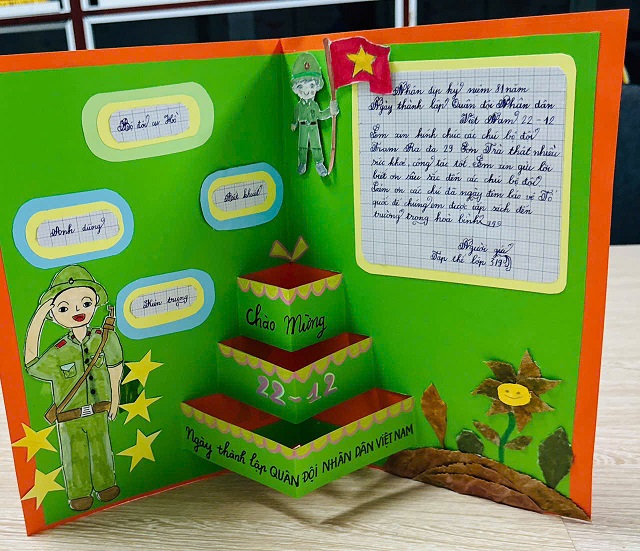 Bộ đội cụ Hồ
Bất khuất
Anh dũng
Kiên trung
Chào Mừng
22-12
Ngày thành lập QUÂN ĐỘI NHÂN DÂN VIỆT NAM
Nhân dịp kỷ niệm 81 năm
Ngày thành lập Quân đội Nhân dân
Việt Nam 22-12
Em xin kính chúc các chú bộ đội
Trung Ra đa 29 Sơn Trà thật nhiều
sức khoẻ, công tác tốt. Em xin gửi lời
biết ơn sâu sắc đến các chú bộ đội.
Cảm ơn các chú đã ngày đêm bảo vệ Tổ
quốc để chúng em được cắp sách đến
trường trong hoà bình
Người gửi
Tập thể lớp 3/9